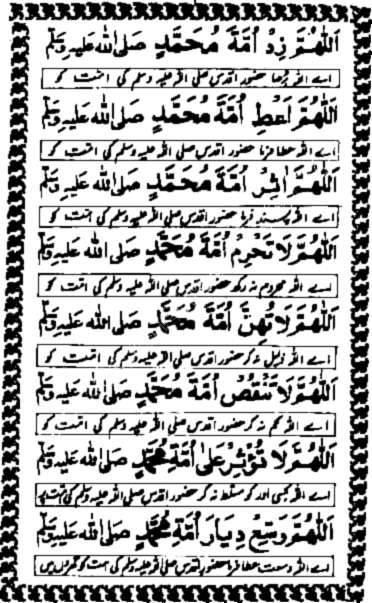 اَللّٰهُمَّ زِدْ اُمَّةَ مُحَمَّدٍ صَلَى الله عَلَيْهِ وَسَلَّم
اے اللہ بڑھا حضور اقدس صلی اللہ علیہ وسلم کی امت کو
اَللّٰهُمَّ اَعْطِ اُمَّةَ مُحَمَّدٍ صَلَى الله عَلَيْهِ وَسَلَّم
اے اللہ عطا فرما حضور اقدس صلی اللہ علیہ وسلم کی امت کو
اَللّٰهُمَّ اٰثِرْ اُمَّةَ مُحَمَّدٍ صَلَى الله عَلَيْهِ وَسَلَّم
اے اللہ پسند فرما حضور اقدس صلی اللہ علیہ وسلم کی امت کو
اَللّٰهُمَّ لَا تَحْرِمْ اُمَّةَ مُحَمَّدٍ صَلَى الله عَلَيْهِ وَسَلَّم
اے اللہ محروم نہ رکھ حضور اقدس صلی اللہ علیہ وسلم کی امت کو
اَللّٰهُمَّ لَا تُهِنَّ اُمَّةَ مُحَمَّدٍ صَلَى الله عَلَيْهِ وَسَلَّم
اے اللہ ذلیل نہ کر حضور اقدس صلی اللہ علیہ وسلم کی امت کو
اَللّٰهُمَّ لَا تَنْقُصْ اُمَّةَ مُحَمَّدٍ صَلَى الله عَلَيْهِ وَسَلَّم
اے اللہ کم نہ کر حضور اقدس صلی اللہ علیہ وسلم کی امت کو
اَللّٰهُمَّ لَا تُؤْثِرْ عَلىٰ اُمَّةِ مُحَمَّدٍ صَلَى الله عَلَيْهِ وَسَلَّم
اے اللہ کسی اور کو مسلط نہ کر حضور اقدس صلی اللہ علیہ وسلم کی امت پر
اَللّٰهُمَّ وَسِّعْ دِيَارَ اُمَّةِ مُحَمَّدٍ صَلَى الله عَلَيْهِ وَسَلَّم
اے اللہ وسعت عطا فرما حضور اقدس صلی اللہ علیہ وسلم کی امت کو گھروں میں